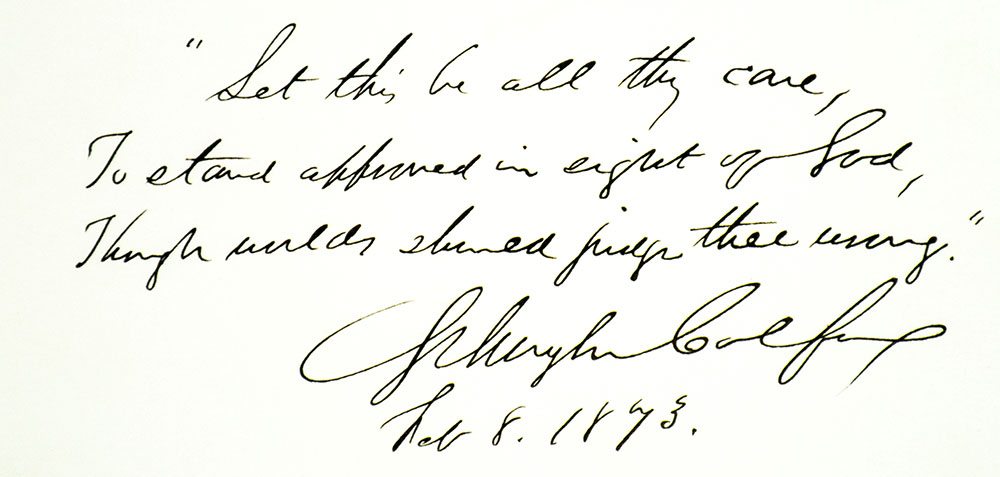 "Let this be all thy care,
To stand approved in sight of God,
Though worlds should judge thee wrong."
Schuyler Colfax
Feb 8. 1873.